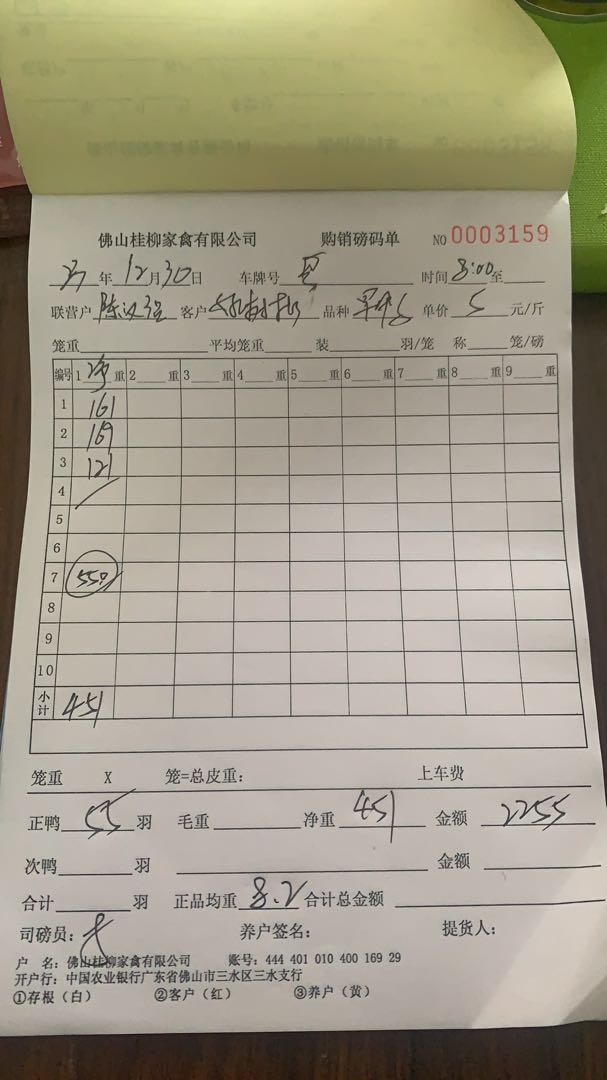 佛山桂柳家禽有限公司 购销磅码单 NO 0003159
23年12月30日 车牌号 时间8:00至
联营户 陈汉强 客户 品种 单价5元/斤
笼重 平均笼重 装 羽/笼 称 笼/磅
编号 1净重 2 重 3 重 4 重 5 重 6 重 7 重 8 重 9 重
1 161
2 169
3 121
4
5
6
7 55只
8
9
10
小计 451
笼重 X 笼=总皮重: 上车费
正鸭55羽 毛重 净重451 金额2255
次鸭 羽 金额
合计 羽 正品均重8.2 合计总金额
司磅员: 养户签名: 提货人:
户 名: 佛山桂柳家禽有限公司 账号: 444 401 010 400 169 29
开户行: 中国农业银行广东省佛山市三水区三水支行
①存根(白) ②客户(红) ③养户(黄)